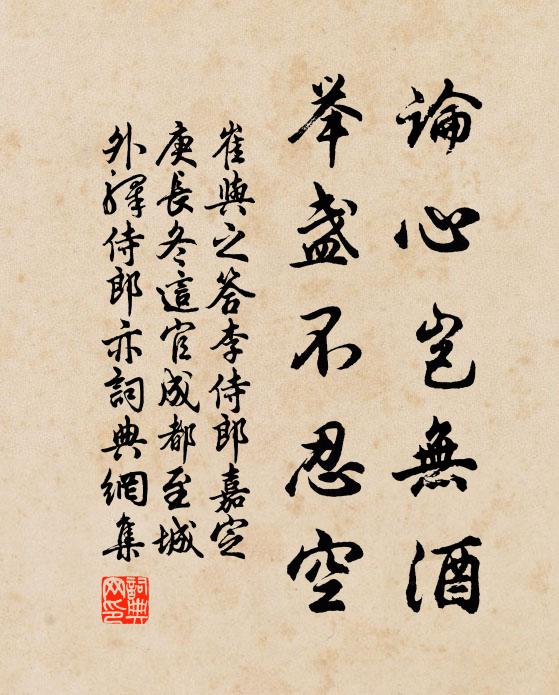 論心岂無酒
举盏不忍空
崔與之答李侍郎嘉定
庚長冬這官成都至城
外驛侍郎亦詞典網集
詞典网印